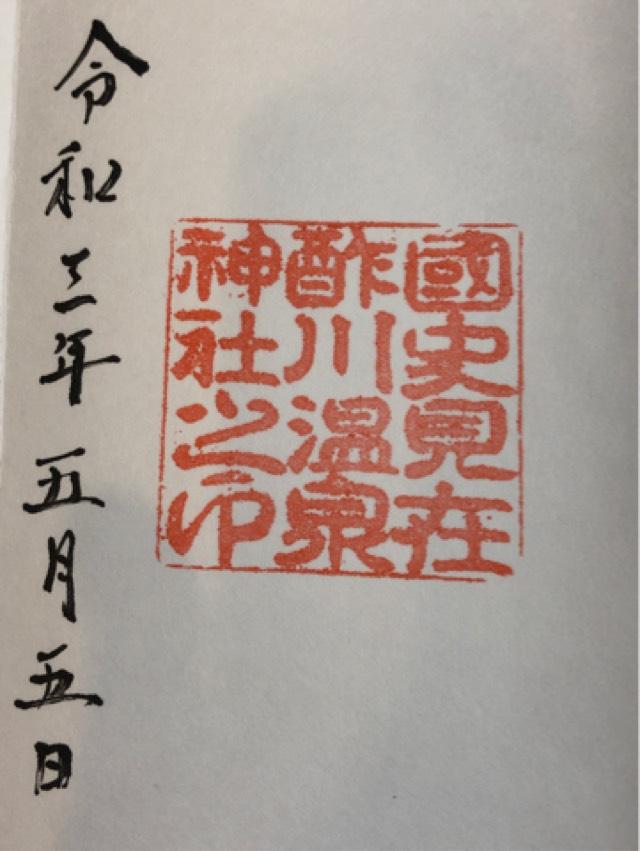 國史見在
酢川温泉
神社之印
令和三年五月五日